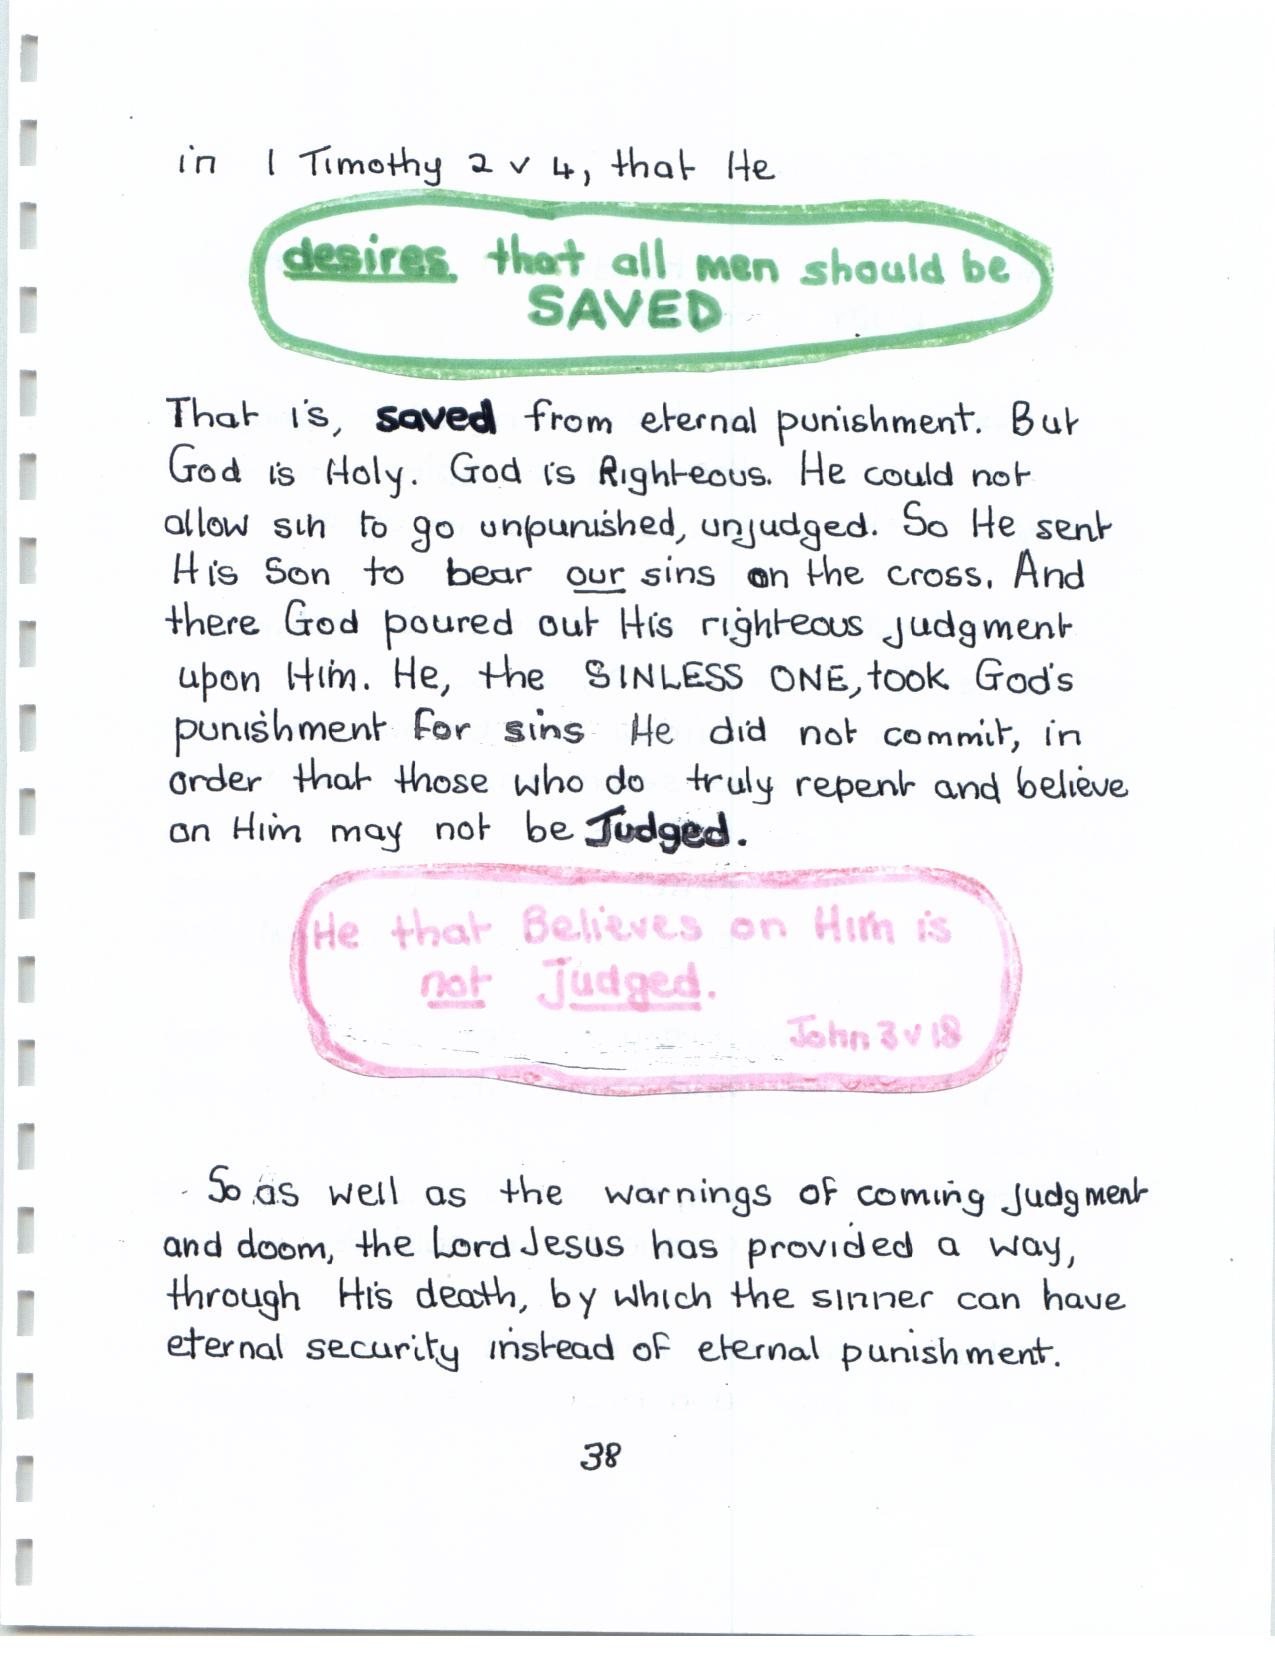 in 1 Timothy 2 v 4, that He
desires that all men should be
SAVED
That is, saved from eternal punishment. But
God is Holy. God is Righteous. He could not
allow sin to go unpunished, unjudged. So He sent
His Son to bear our sins on the cross. And
there God poured out His righteous judgment
upon Him. He, the SINLESS ONE, took God's
punishment for sins He did not commit, in
order that those who do truly repent and believe
on Him may not be Judged.
He that Believes on Him is
not Judged.
John 3 v 18
So as well as the warnings of coming judgment
and doom, the Lord Jesus has provided a way,
through His death, by which the sinner can have
eternal security instead of eternal punishment.
38